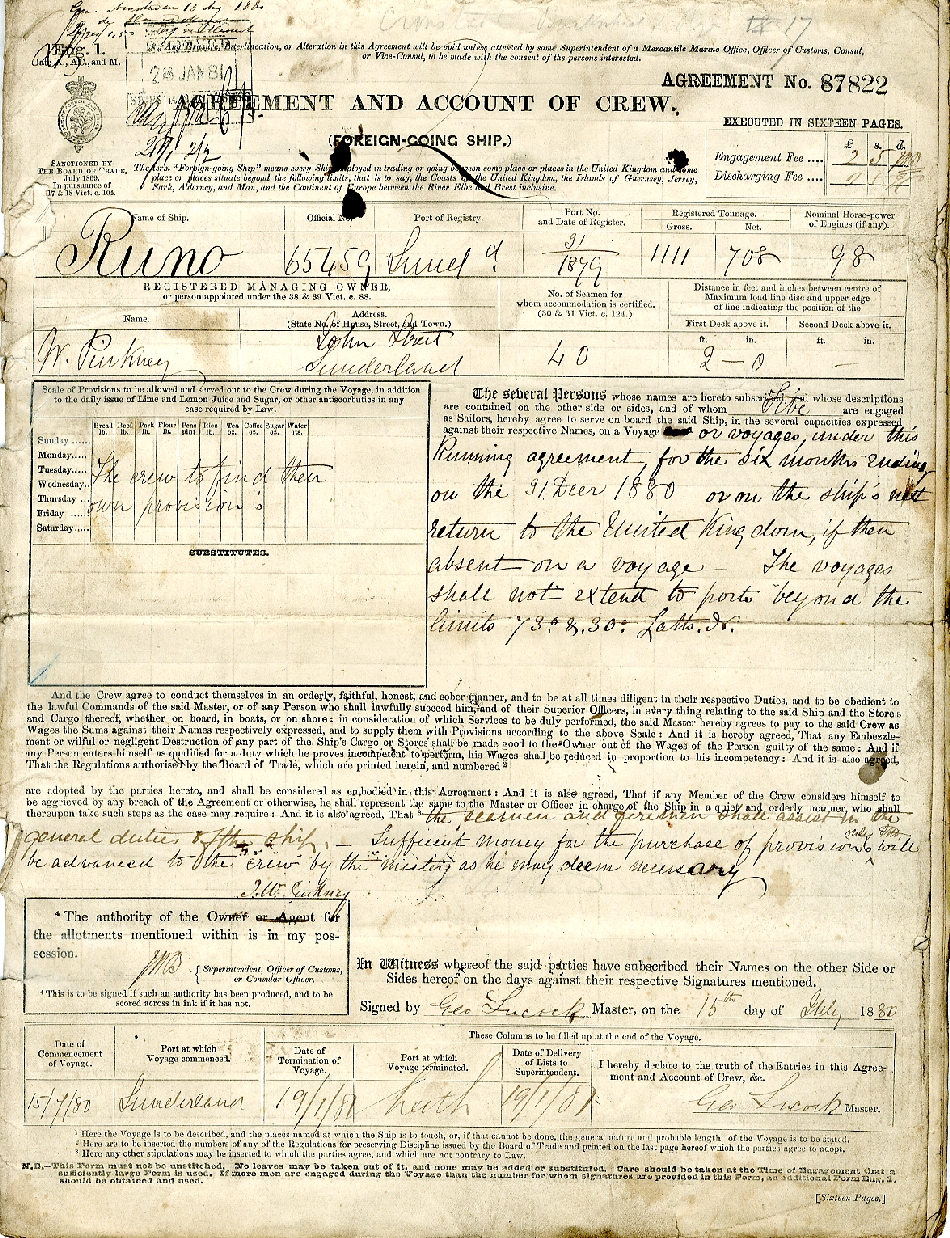 Eng. 1.
28 JAN 81
Any Erasure, Interlineation, or Alteration in this Agreement will be void unless attested by some Superintendent of a Mercantile Marine Office, Officer of Customs, Consul,
or Vice-Consul, to be made with the consent of the persons interested.
AGREEMENT No. 87822
AGREEMENT AND ACCOUNT OF CREW.
(FOREIGN-GOING SHIP.)
EXECUTED IN SIXTEEN PAGES.
£ s. d.
Engagement Fee ....
Discharging Fee ....
SANCTIONED BY
THE BOARD OF TRADE,
July 1869.
In pursuance of
17 & 18 Vict. c. 104.
The term "Foreign-going Ship" means every Ship employed in trading or going between some place or places in the United Kingdom and some
place or places situate beyond the following limits, that is to say, the Coasts of the United Kingdom, the Islands of Guernsey, Jersey,
Sark, Alderney, and Man, and the Continent of Europe between the River Elbe and Brest inclusive.
Name of Ship.
Official No.
Port of Registry.
Port No. and Date of Register.
Registered Tonnage.
Gross. Net.
Nominal Horse-power of Engines (if any).
Runo
65459
Sund d.
31/1879
1111
708
98
REGISTERED MANAGING OWNER,
or person appointed under the 38 & 39 Vict. c. 88.
No. of Seamen for whom accommodation is certified. (30 & 31 Vict. c. 124.)
Distance in feet and inches between centre of
Maximum load line disc and upper edge
of line indicating the position of the
Name.
Address.
(State No. of House, Street, and Town.)
First Deck above it.
Second Deck above it.
ft. in.
ft. in.
W. Pinkney
John Street
Sunderland
40
2 — 0
—
Scale of Provisions to be allowed and served out to the Crew during the Voyage, in addition
to the daily issue of Lime and Lemon Juice and Sugar, or other antiscorbutics in any
case required by Law.
Sunday
Monday
Tuesday
Wednesday
Thursday
Friday
Saturday
The crew to find their
own provisions
SUBSTITUTES.
The several Persons whose names are hereto subscribed, and whose descriptions
are contained on the other side or sides, and of whom Five are engaged
as Sailors, hereby agree to serve on board the said Ship, in the several capacities expressed
against their respective Names, on a Voyage or voyages, under this
Running agreement, for the six months ending
on the 31 Decr 1880 or on the ship's next
return to the United Kingdom, if then
absent on a voyage — The voyages
shall not extend to ports beyond the
limits 73° & 30° Latts. N.
And the Crew agree to conduct themselves in an orderly, faithful, honest, and sober manner, and to be at all times diligent in their respective Duties, and to be obedient to
the lawful Commands of the said Master, or of any Person who shall lawfully succeed him, and of their Superior Officers, in every thing relating to the said Ship and the Stores
and Cargo thereof, whether on board, in boats, or on shore: in consideration of which Services to be duly performed, the said Master hereby agrees to pay to the said Crew as
Wages the Sums against their Names respectively expressed, and to supply them with Provisions according to the above Scale: And it is hereby agreed, That any Embezzle-
ment or wilful or negligent Destruction of any part of the Ship's Cargo or Stores shall be made good to the Owner out of the Wages of the Person guilty of the same: And if
any Person enters himself as qualified for a duty which he proves incompetent to perform, his Wages shall be reduced in proportion to his incompetency: And it is also agreed,
That the Regulations authorised by the Board of Trade, which are printed herein, and numbered ²
are adopted by the parties hereto, and shall be considered as embodied in this Agreement: And it is also agreed, That if any Member of the Crew considers himself to
be aggrieved by any breach of the Agreement or otherwise, he shall represent the same to the Master or Officer in charge of the Ship in a quiet and orderly manner, who shall
thereupon take such steps as the case may require: And it is also agreed, That ³ the seamen and firemen shall assist in the
general duties of the ship. — Sufficient money for the purchase of provisions will
be advanced to the crew by the master as he may deem necessary
⁴ The authority of the Owner or Agent for
the allotments mentioned within is in my pos-
session.
Superintendent, Officer of Customs, or Consular Officer.
⁴ This is to be signed if such an authority has been produced, and to be
scored across in ink if it has not.
In Witness whereof the said parties have subscribed their Names on the other Side or
Sides hereof on the days against their respective Signatures mentioned.
Signed by Geo Lucock, Master, on the 15th day of July 1880
Date of Commencement of Voyage.
Port at which Voyage commenced.
These Columns to be filled up at the end of the Voyage.
Date of Termination of Voyage.
Port at which Voyage terminated.
Date of Delivery of Lists to Superintendent.
I hereby declare to the truth of the Entries in this Agree-
ment and Account of Crew, &c.
15/7/80
Sunderland
19/1/81
Leith
19/1/81
Geo Lucock Master.
¹ Here the Voyage is to be described, and the places named at which the Ship is to touch, or, if that cannot be done, the general nature and probable length of the Voyage is to be stated.
² Here are to be inserted the numbers of any of the Regulations for preserving Discipline issued by the Board of Trade and printed on the last page hereof which the parties agree to adopt.
³ Here any other stipulations may be inserted to which the parties agree, and which are not contrary to Law.
N.B.—This Form must not be unstitched. No leaves may be taken out of it, and none may be added or substituted. Care should be taken at the Time of Engagement that a
sufficiently large Form is used. If more men are engaged during the Voyage than the number for whom signatures are provided in this Form, an additional Form Eng. 1.
should be obtained and used.
[Sixteen Pages.]